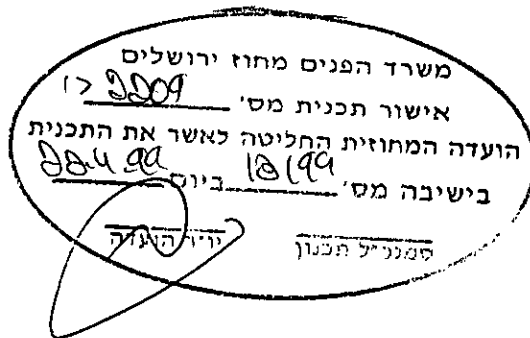 משרד הפנים מחוז ירושלים
אישור תכנית מס' 2209 ג'
הועדה המחוזית החליטה לאשר את התכנית
בישיבה מס' 12/99 ביום 22.4.99
סמנכ"ל תכנון יו"ר הועדה